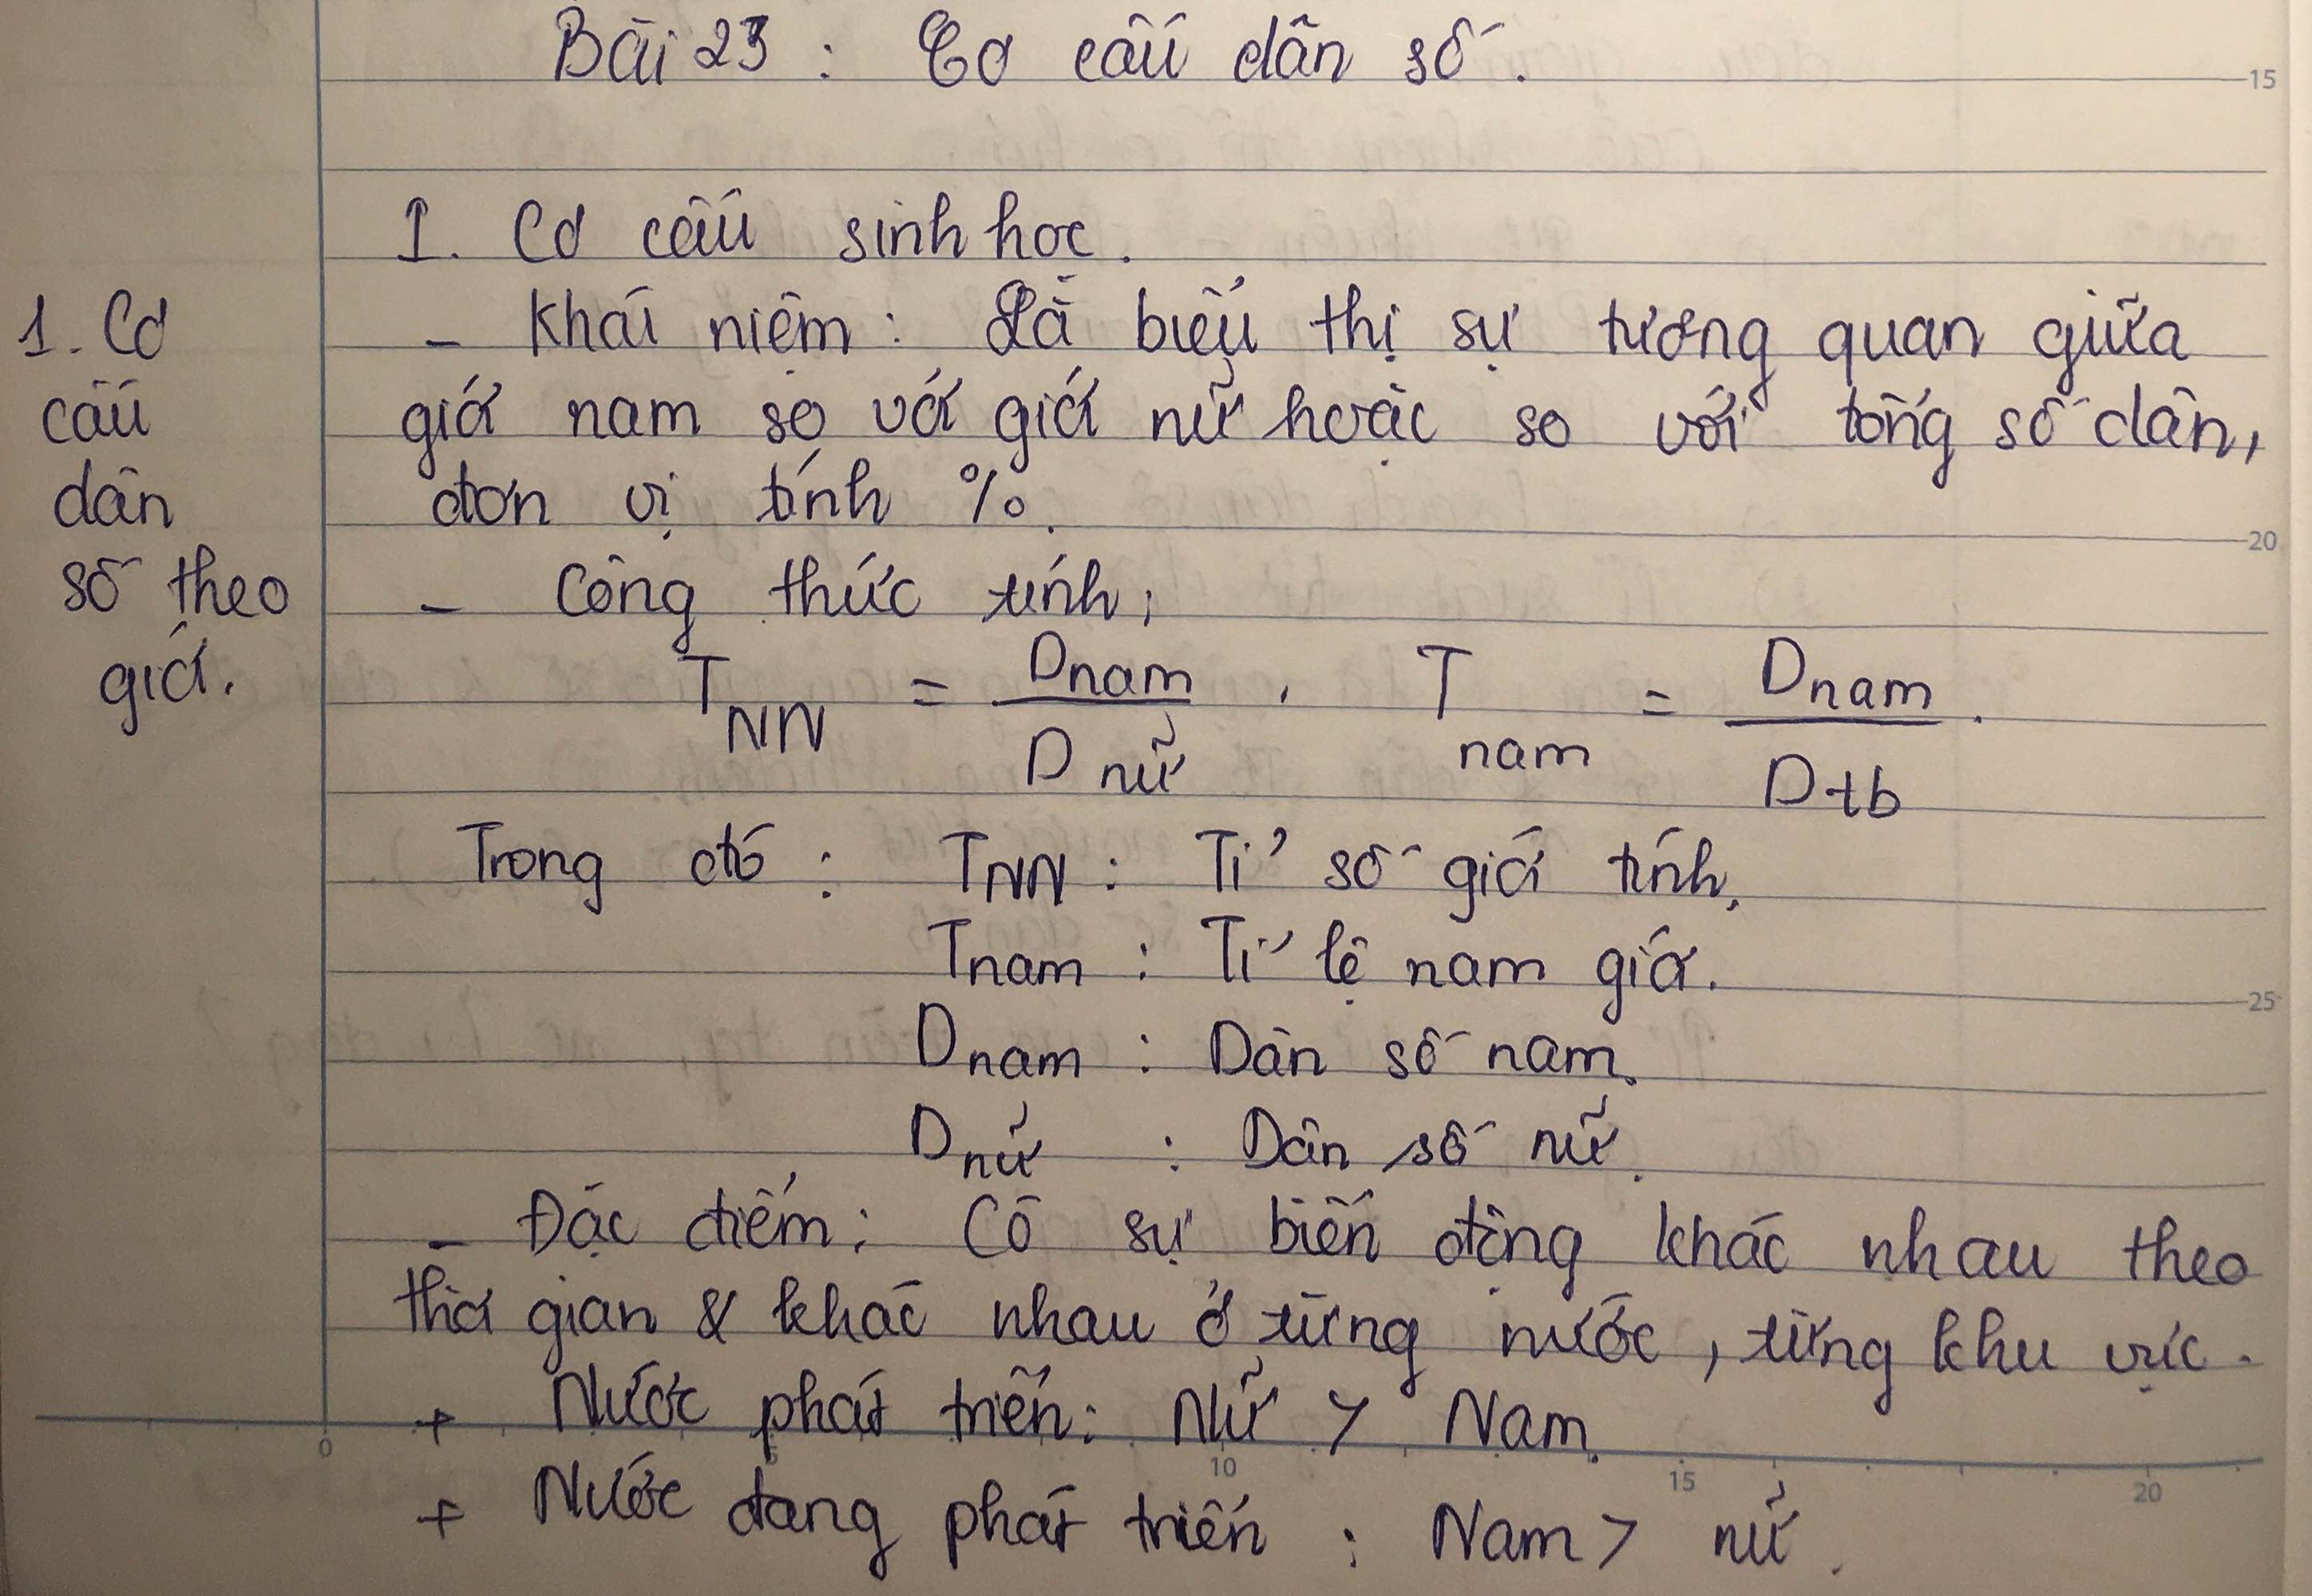 Bài 23 : Cơ cấu dân số.
15
I. Cơ cấu sinh học.
1. Cơ cấu dân số theo giới.
- Khái niệm : Là biểu thị sự tương quan giữa
giới nam so với giới nữ hoặc so với tổng số dân,
đơn vị tính %.
20
- Công thức tính:
T_NN = D_nam / D_nữ , T_nam = D_nam / D_tb .
Trong đó : T_NN : Tỉ số giới tính.
T_nam : Tỉ lệ nam giới.
25
D_nam : Dân số nam.
D_nữ : Dân số nữ.
- Đặc điểm: Có sự biến động khác nhau theo
thời gian & khác nhau ở từng nước, từng khu vực.
+ Nước phát triển: Nữ > Nam.
0 10 15 20
+ Nước đang phát triển : Nam > nữ.